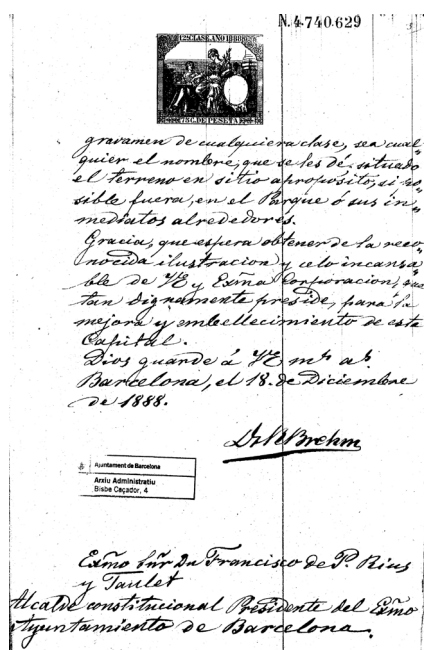 N. 4.740.629
12ª CLASE. AÑO 1888
75 C. DE PESETA
gravamen de cualquiera clase, sea cual"
quier el nombre, que se les dé, situado
el terreno en sitio apropósito, si po"
sible fuera, en el Parque ó sus in"
mediatos alrededores.
Gracia, que espera obtener de la reco"
nocida ilustracion y celo incansa"
ble de VE y Exma Corporacion, que
tan dignamente preside, para la
mejora y embellecimiento de esta
Capital.
Dios guarde á VE ms as.
Barcelona, el 18. de Diciembre
de 1888.
Dr R Brehm
Ajuntament de Barcelona
Arxiu Administratiu
Bisbe Caçador, 4
Exmo Snr Dn Francisco de P. Rius
y Taulet
Alcalde constitucional Presidente del Exmo
Ayuntamiento de Barcelona.